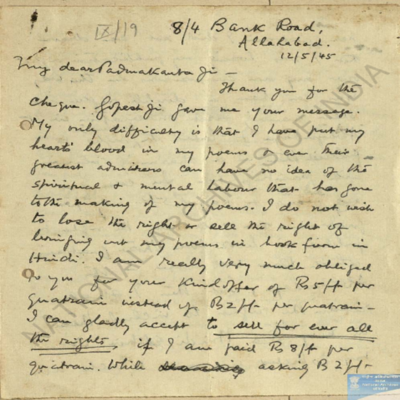 IX/19
8/4 Bank Road,
Allahabad.
12/5/45
My dear Padmakanta Ji –
Thank you for the
cheque. Gopesh Ji gave me your message.
My only difficulty is that I have put my
heart's blood in my poems & even their
greatest admirers can have no idea of the
spiritual & mental labour that has gone
to the making of my poems. I do not wish
to lose the right or sell the right of
bringing out my poems in book form in
Hindi. I am really very much obliged
to you for your kind offer of Rs 5/- per
quatrain instead of Rs 2/- per quatrain –
I can gladly accept to sell for ever all
the rights, if I am paid Rs 8/- per
quatrain. While asking Rs 2/-
NATIONAL ARCHIVES OF INDIA